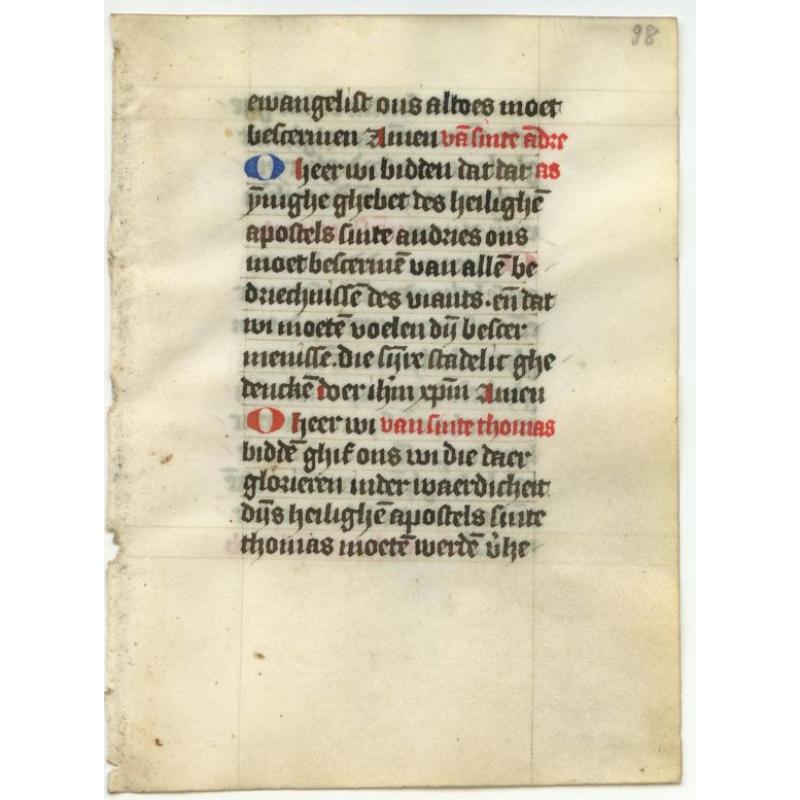 98
ewangelist ons altoes moet
bescermen Amen vā sinte ādre
O heer wi bidden dat dat as
ỹnighe ghebet des heilighē
apostels sinte andries ons
moet bescermē van allē be
driechnissē des viants. eñ dat
wi moetē voelen dijn bescer
menisse. die sijre stadelic ghe
denckē doer ihm̄ xpm̄ Amen
O heer wi van sinte thomas
biddē ghif ons wi die daer
glorieren inder waerdicheit
dijns heilighē apostels sinte
thomas moetē werdē v̾he